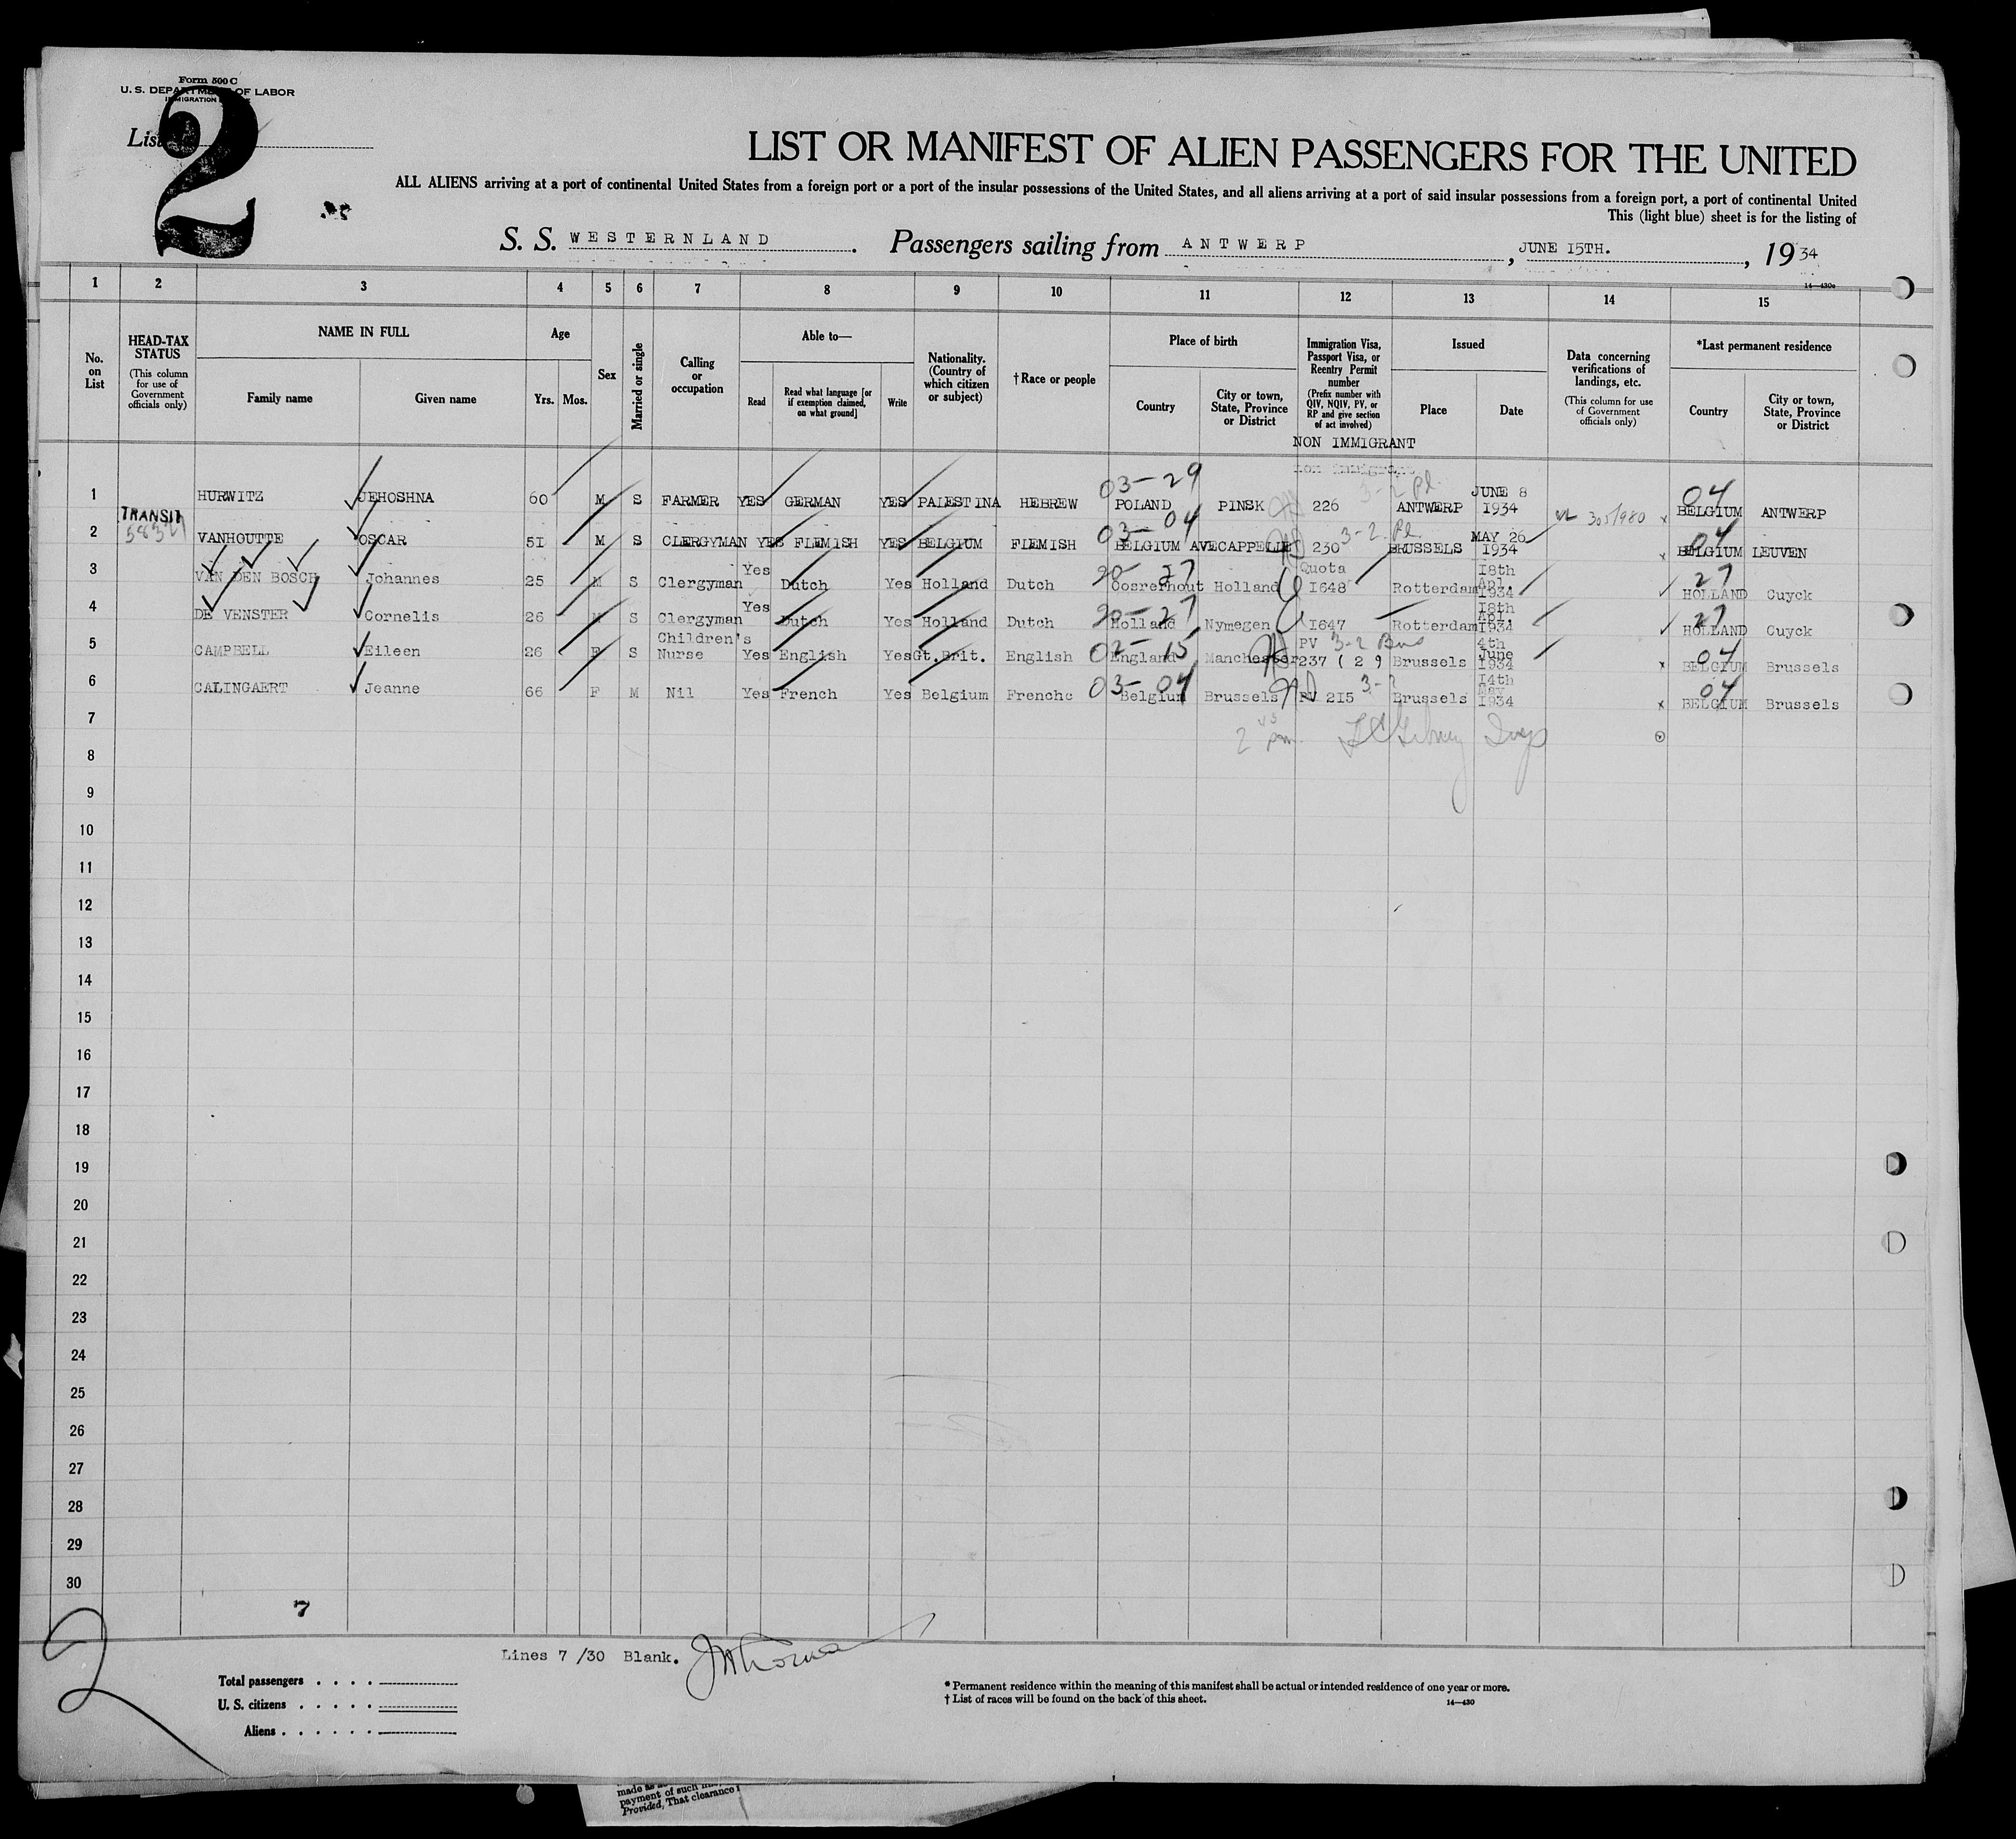 Form 500 C
U. S. DEPARTMENT OF LABOR
IMMIGRATION
List
2
LIST OR MANIFEST OF ALIEN PASSENGERS FOR THE UNITED
ALL ALIENS arriving at a port of continental United States from a foreign port or a port of the insular possessions of the United States, and all aliens arriving at a port of said insular possessions from a foreign port, a port of continental United
This (light blue) sheet is for the listing of
S. S. WESTERNLAND. Passengers sailing from ANTWERP, JUNE I5TH., 1934
14—430c
1 2 3 4 5 6 7 8 9 10 11 12 13 14 15
No. on List
HEAD-TAX STATUS
(This column for use of Government officials only)
NAME IN FULL
Family name
Given name
Age
Yrs. Mos.
Sex
Married or single
Calling or occupation
Able to—
Read
Read what language [or if exemption claimed, on what ground]
Write
Nationality. (Country of which citizen or subject)
† Race or people
Place of birth
Country
City or town, State, Province or District
Immigration Visa, Passport Visa, or Reentry Permit number
(Prefix number with QIV, NQIV, PV, or RP and give section of act involved)
Issued
Place
Date
Data concerning verifications of landings, etc.
(This column for use of Government officials only)
*Last permanent residence
Country
City or town, State, Province or District
NON IMMIGRANT
non immigrant
03-29 3-2 Pl. 04
1 HURWITZ JEHOSHNA 60 M S FARMER YES GERMAN YES PALESTINA HEBREW POLAND PINSK 226 ANTWERP JUNE 8 1934 BELGIUM ANTWERP
TRANSIT
03-04 3-2 Pl. 04
2 VANHOUTTE OSCAR 5I M S CLERGYMAN YES FLEMISH YES BELGIUM FLEMISH BELGIUM AVECAPPELLE 230 BRUSSELS MAY 26 1934 x BELGIUM LEUVEN
20-27 27
3 VAN DEN BOSCH Johannes 25 M S Clergyman Yes Dutch Yes Holland Dutch Oosrerhout Holland Quota I648 Rotterdam I8th Apl. I934 HOLLAND Cuyck
20-27 27
4 DE VENSTER Cornelis 26 M S Clergyman Yes Dutch Yes Holland Dutch Holland Nymegen I647 Rotterdam I8th Apl. I934 HOLLAND Cuyck
02-15 04
5 CAMPBELL Eileen 26 F S Children's Nurse Yes English Yes Gt.Brit. English England Manchester PV 237 ( 2 9 Brussels 4th June I934 x BELGIUM Brussels
03-04 04
6 CALINGAERT Jeanne 66 F M Nil Yes French Yes Belgium Frenchc Belgium Brussels PV 2I5 Brussels I4th May I934 x BELGIUM Brussels
7
8
9
10
11
12
13
14
15
16
17
18
19
20
21
22
23
24
25
26
27
28
29
30
7
2
Lines 7 /30 Blank.
Total passengers
U. S. citizens
Aliens
* Permanent residence within the meaning of this manifest shall be actual or intended residence of one year or more.
† List of races will be found on the back of this sheet.
14—430
payment of such
Provided, That clearance